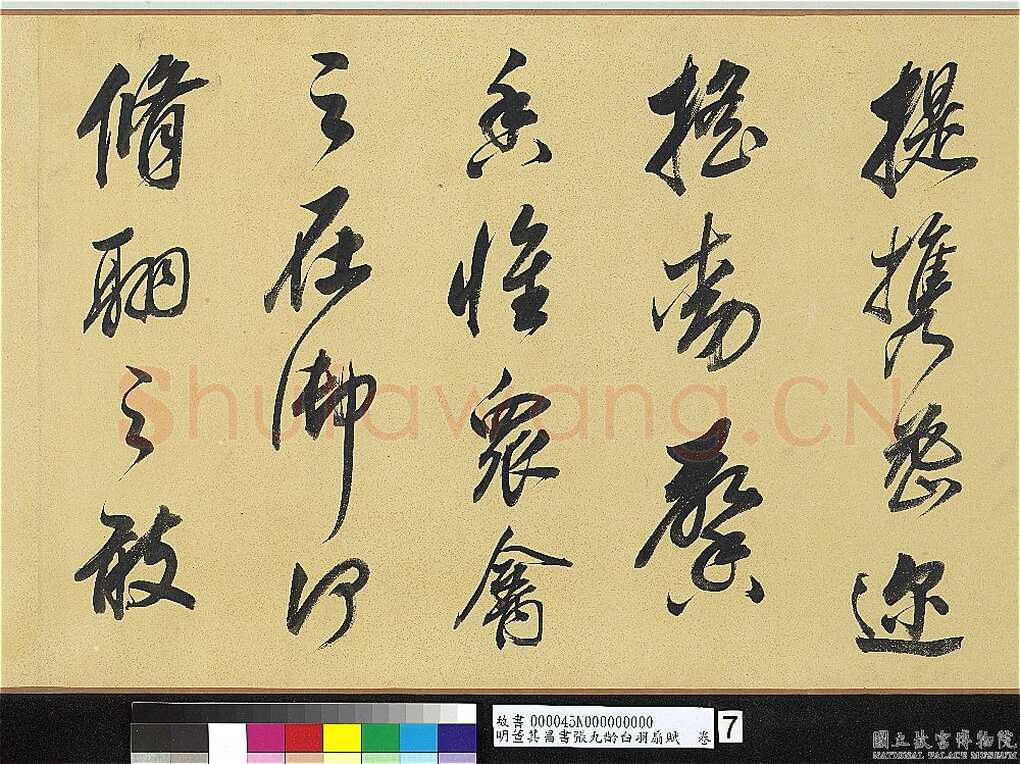 提携密迩
搖動馨
香惟眾禽
之在御何
脩翮之敢
Shufawang.CN
故書 000043N000000000
明董其昌書張九齡白羽扇賦 卷
7
國立故宮博物院
NATIONAL PALACE MUSEUM